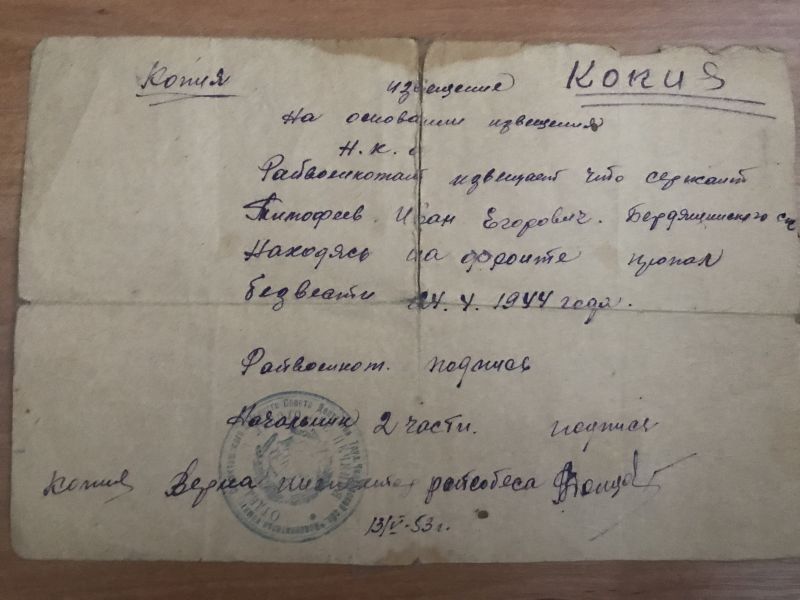 Копия извещение Копия
На основании извещения
Н.К.О
Райвоенкомат извещает что сержант
Тимофеев Иван Егорович.
Находясь на фронте пропал
безвести 4. 1944 года.
Райвоенком. подпись
Начальник 2 части. подпись
копия Верна инспектор райсобеса
13/V-53г.